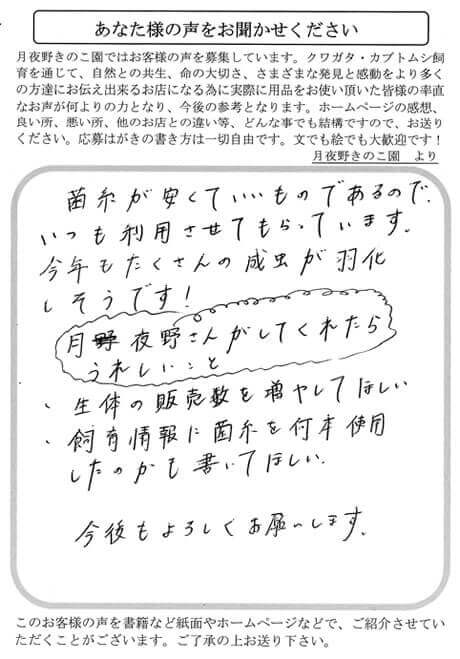 あなた様の声をお聞かせください
月夜野きのこ園ではお客様の声を募集しています。クワガタ・カブトムシ飼
育を通じて、自然との共生、命の大切さ、さまざまな発見と感動をより多く
の方達にお伝え出来るお店になる為に実際に用品をお使い頂いた皆様の率直
なお声が何よりの力となり、今後の参考となります。ホームページの感想、
良い所、悪い所、他のお店との違い等、どんな事でも結構ですので、お送り
ください。応募はがきの書き方は一切自由です。文でも絵でも大歓迎です！
月夜野きのこ園　より
菌糸が安くていいものであるので、
いつも利用させてもらっています。
今年もたくさんの成虫が羽化
しそうです！
月夜野さんがしてくれたら
うれしいこと
・生体の販売数を増やしてほしい
・飼育情報に菌糸を何本使用
したのかも書いてほしい.
今後もよろしくお願いします。
このお客様の声を書籍など紙面やホームページなどで、ご紹介させてい
ただくことがございます。ご了承の上お送り下さい。